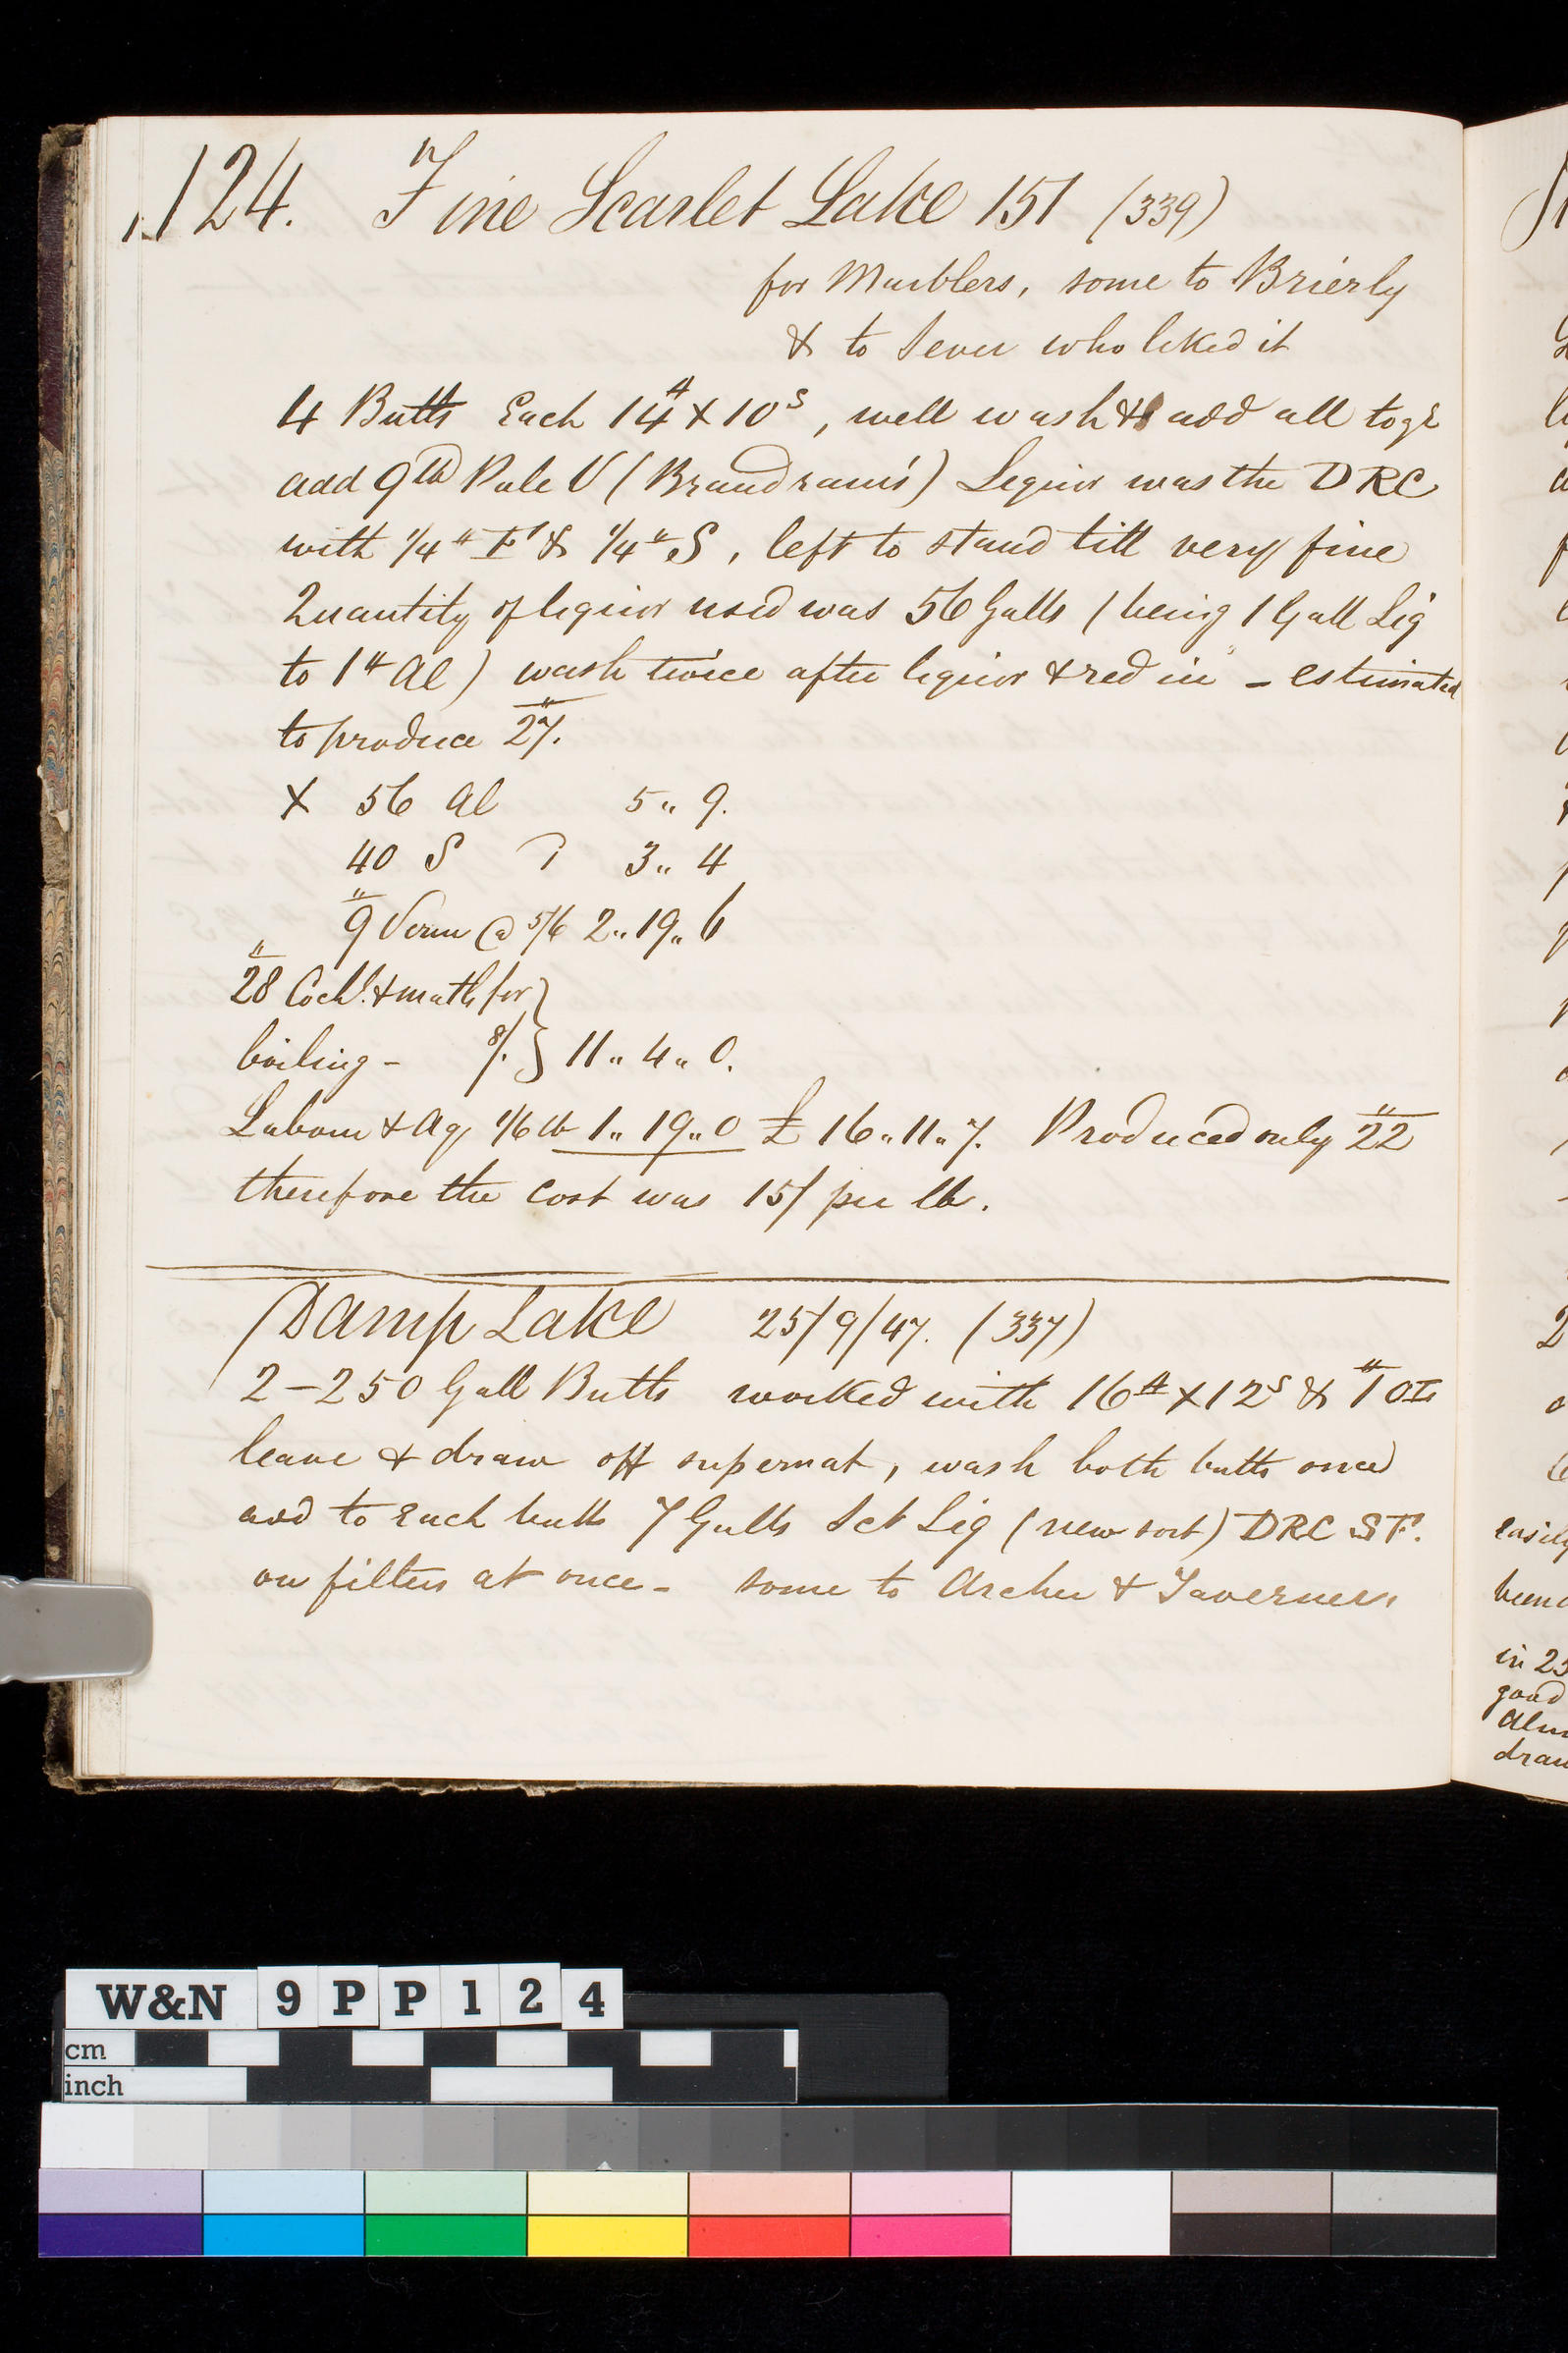 124. Fine Scarlet Lake 151 (339)
for Marblers, some to Brierly
& to Sever who liked it
4 Butts Each 14A X 10S, well wash & add all togr
add 9lb Pale V (Brandram's) Liquor was the DRC
with 1/4" F & 1/4" S, left to stand till very fine
Quantity of liquor used was 56 Galls (being 1 Gall Liq
to 1" Al) wash twice after liquor & red in - estimated
to produce 27.
X 56 Al 5 " 9.
40 S 3 " 4
9 Verm @ 5/6 2 " 19 " 6
28 Cochl. & math for
boiling - 8/. } 11 " 4 " 0.
Labour & Ag 1/6 lb 1 " 19 " 0 £ 16 " 11 " 7. Produced only 22
therefore the cost was 15/ per lb.
Damp Lake 25/9/47. (337)
2-250 Gall Butts worked with 16A X 12S & 1 OI
leave & draw off supernat, wash both butts once
add to Each butt 7 Galls Sct Liq (new sort) DRC SF.
on filters at once - some to Archer & Taverner.
easily
been
in 25
good
Alu
draw
W&N 9PP124
cm
inch